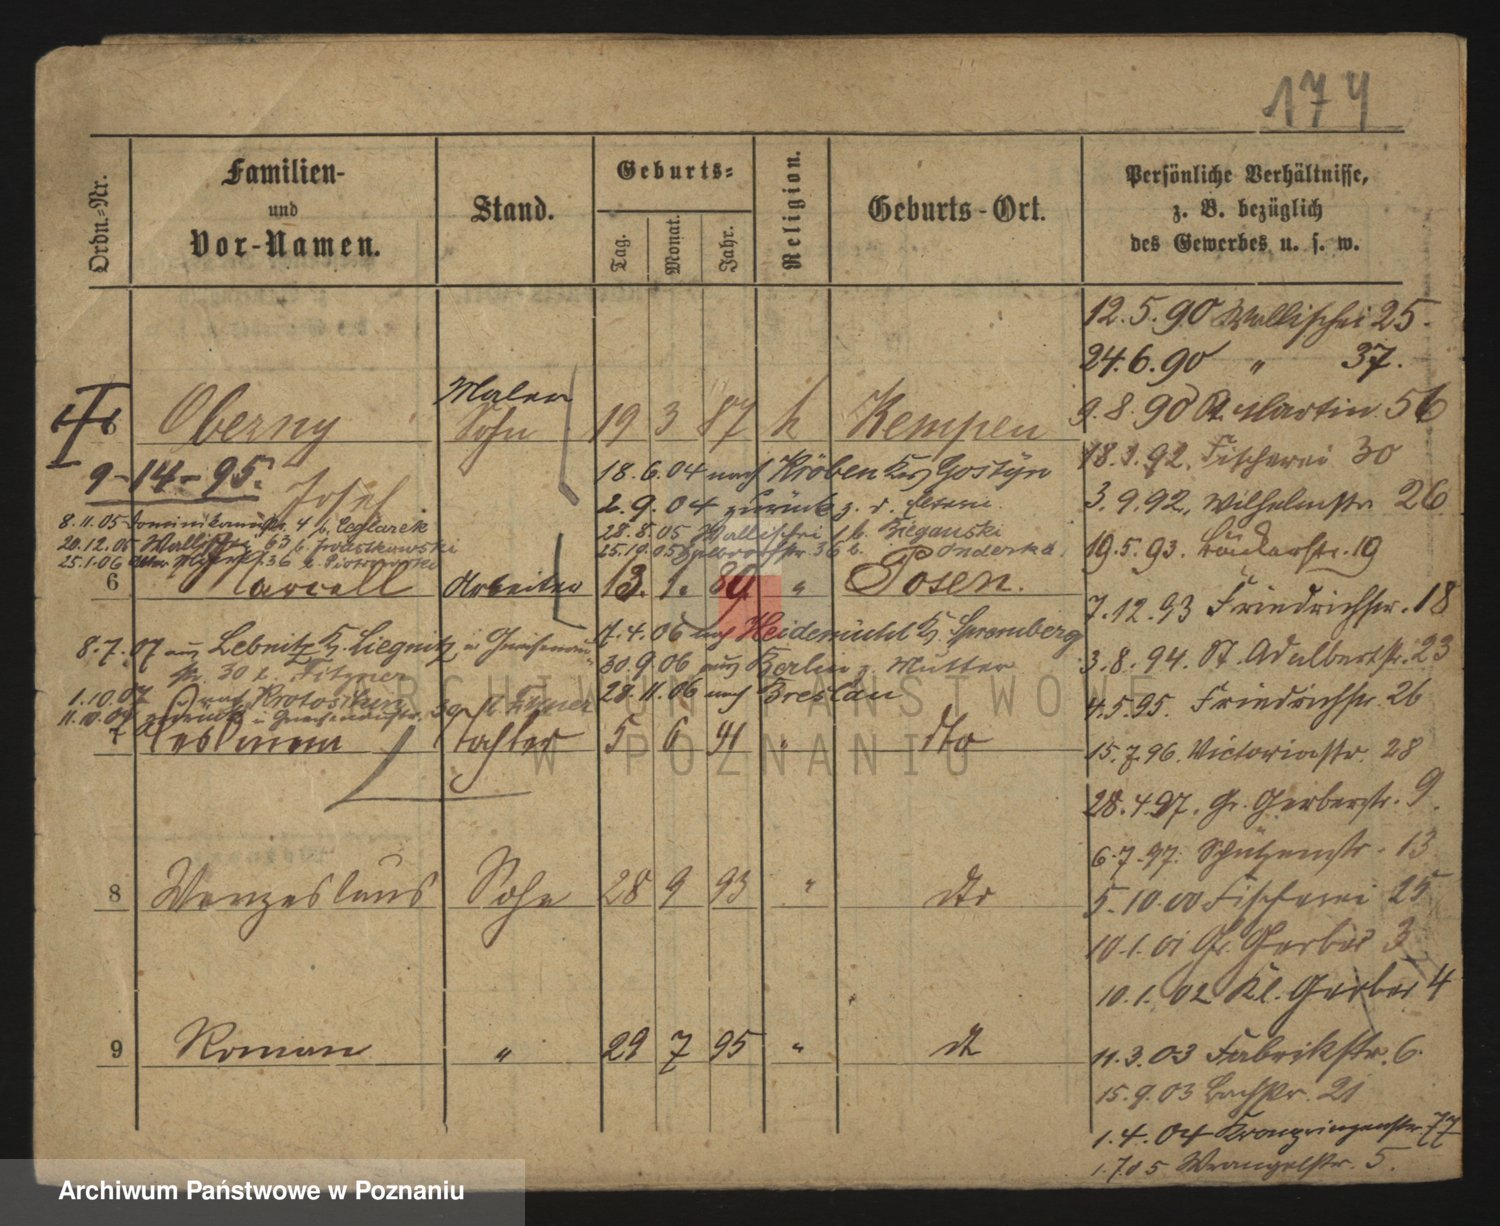 174
Ordn.-Nr.
Familien-
und
Vor-Namen.
Stand.
Geburts-
Tag.
Monat.
Jahr.
Religion.
Geburts-Ort.
Persönliche Verhältnisse,
z. B. bezüglich
des Gewerbes u. s. w.
12.5.90 Wallischei 25.
24.6.90 " 37.
9.8.90 St. Martin 56
18.3.92. Fischerei 30
3.9.92. Wilhelmstr. 26
19.5.93. 19
7.12.93 Friedrichstr. 18
3.8.94. St. Adalbertstr. 23
4.5.95. Friedrichstr. 26
15.7.96. Victoriastr. 28
28.4.97. Gr. Gerberstr. 9.
6.7.97. Schützenstr. 13
5.10.00 Fischerei 25
10.1.01 Gr. Gerber 3
10.1.02 Kl. Gerber 4
11.3.03 Fabrikstr. 6.
15.9.03 Bachstr. 21
1.4.04 Kronprinzenstr. 77
1.7.05 Wrangelstr. 5.
Maler
Oberny Sohn 19 3 87 k Kempen
9-14-95.
Josef
18.6.04 nach Kröben Krs Gostyn
2.9.04 zurück z. d.
8.11.05 Dominikanerstr. 4 b. Ceglarek
28.8.05 Wallischei 1 b. Bieganski
20.12.05 Wallischei 63 b.
25.10.05 36 b. Onderka
25.1.06 36 b. Piotrowski
6 Marcell Arbeiter 13. 1. 89 " Posen.
17.4.06 nach Heidemühl Kr. Spremberg
8.7.07 aus Lebnitz Kr. Liegnitz n. Gneisenau-
str. 30 b. Fitzner
30.9.06 aus Berlin z. Mutter
28.11.06 nach Breslau
1.10.07 nach Krotoschin
11.10.07 zurück n. Gneisenaustr. 30 b. Fitzner
7 Tochter 5 6 91 " dto
8 Wenzeslaus Sohn 28 9 93 " dto
9 Roman " 29 7 95 " dt
ARCHIWUM PAŃSTWOWE
W POZNANIU
Archiwum Państwowe w Poznaniu